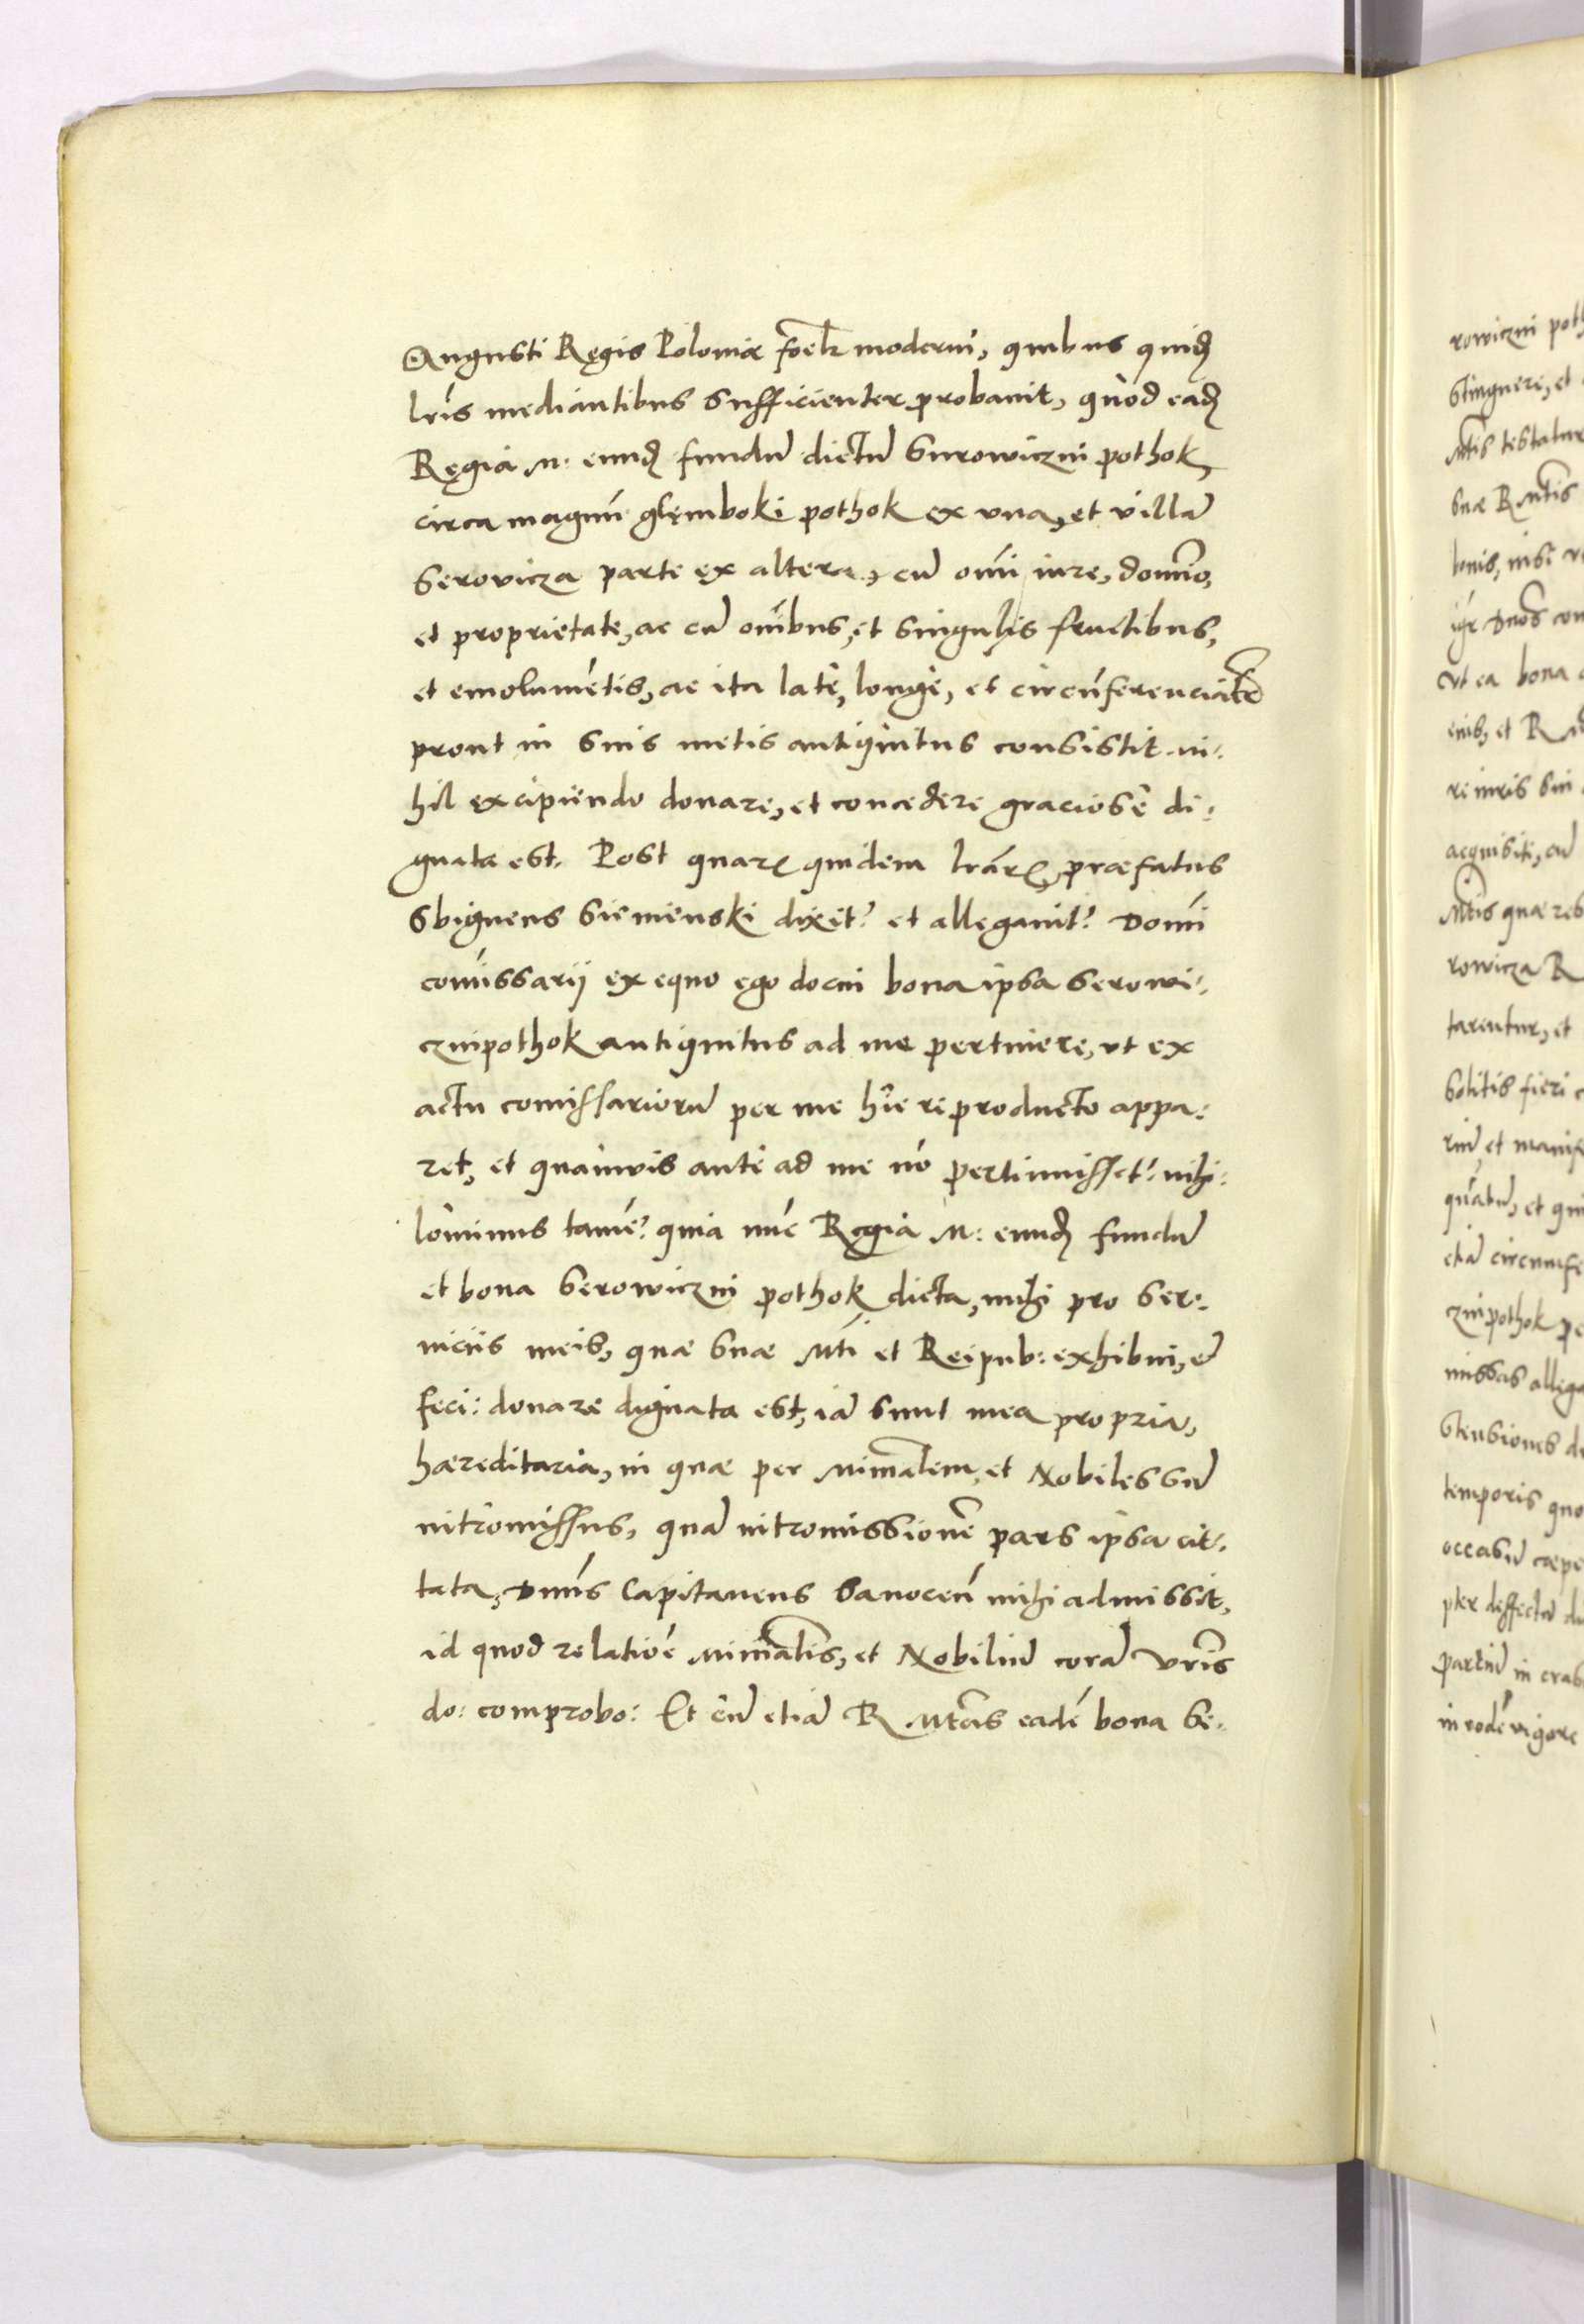 Augusti Regis Poloniæ fœl: moderni, quibus quidẽ
lr̃is mediantibus sufficienter probavit, quòd eadẽ
Regia M: eundẽ fundũ dictũ Surowiczni pothok,
circa magnũ glęmboki pothok ex una, et villã
Serovicza parte ex altera, cũ omĩ iure, domĩo,
et proprietate, ac cũ omĩbus, et singulis fructibus,
et emolumẽtis, ac ita latè, longè, et circũferenciałr
prout in suis metis antiquitus consistit. ni:
hil excipiendo donare, et concedere graciosè di:
gnata est. Post quarũ quidem lr̃arũ, præfatus
Sbigneus Siemienski dixit? et allegavit? Domĩ
comissarij ex equo ego docui bona ipsa Serowi:
cznipothok antiquitus ad me pertinere, ut ex
actu comissariorũ per me hîc reproducto appa:
ret, et quamvis antè ad me nõ pertinuisset? nihi:
lominus tamẽ? quia nũc Regia M: eundẽ fundũ
et bona Serowiczni pothok dicta, mihi pro ser:
viciis meis, quæ suæ Mti et Reipub: exhibui, et
feci: donare dignata est, iã sunt mea propria,
hæreditaria, in quæ per Minrałem, et Nobiles sũ
intromissus, quã intromissionẽ pars ipsa cit:
tata, Dnus Capitaneus Sanoceñ mihi admissit,
id quod relatiõe Minrałis, et Nobiliũ corã Vr̃is
do: comprobo: Et cũ etiã R Mtas eadẽ bona Se:
rowiczni poth
stinguere, et
Mtis testatur
suæ R Mtis
bonis, nisi
igr Dños com
Ut ea bona
eius, et R
re iuris sui
acquisiti, cũ
Mtis quæ res
rowicza R
tarentur, et
solitis fieri
riũ, et manif
quãtũ, et qui
etiã circumfe
cznipothok pe
missas allega
stensiones
temporis quo
occasũ cæpe
pter deffectũ
partiũ in cras
in eodẽ vigore